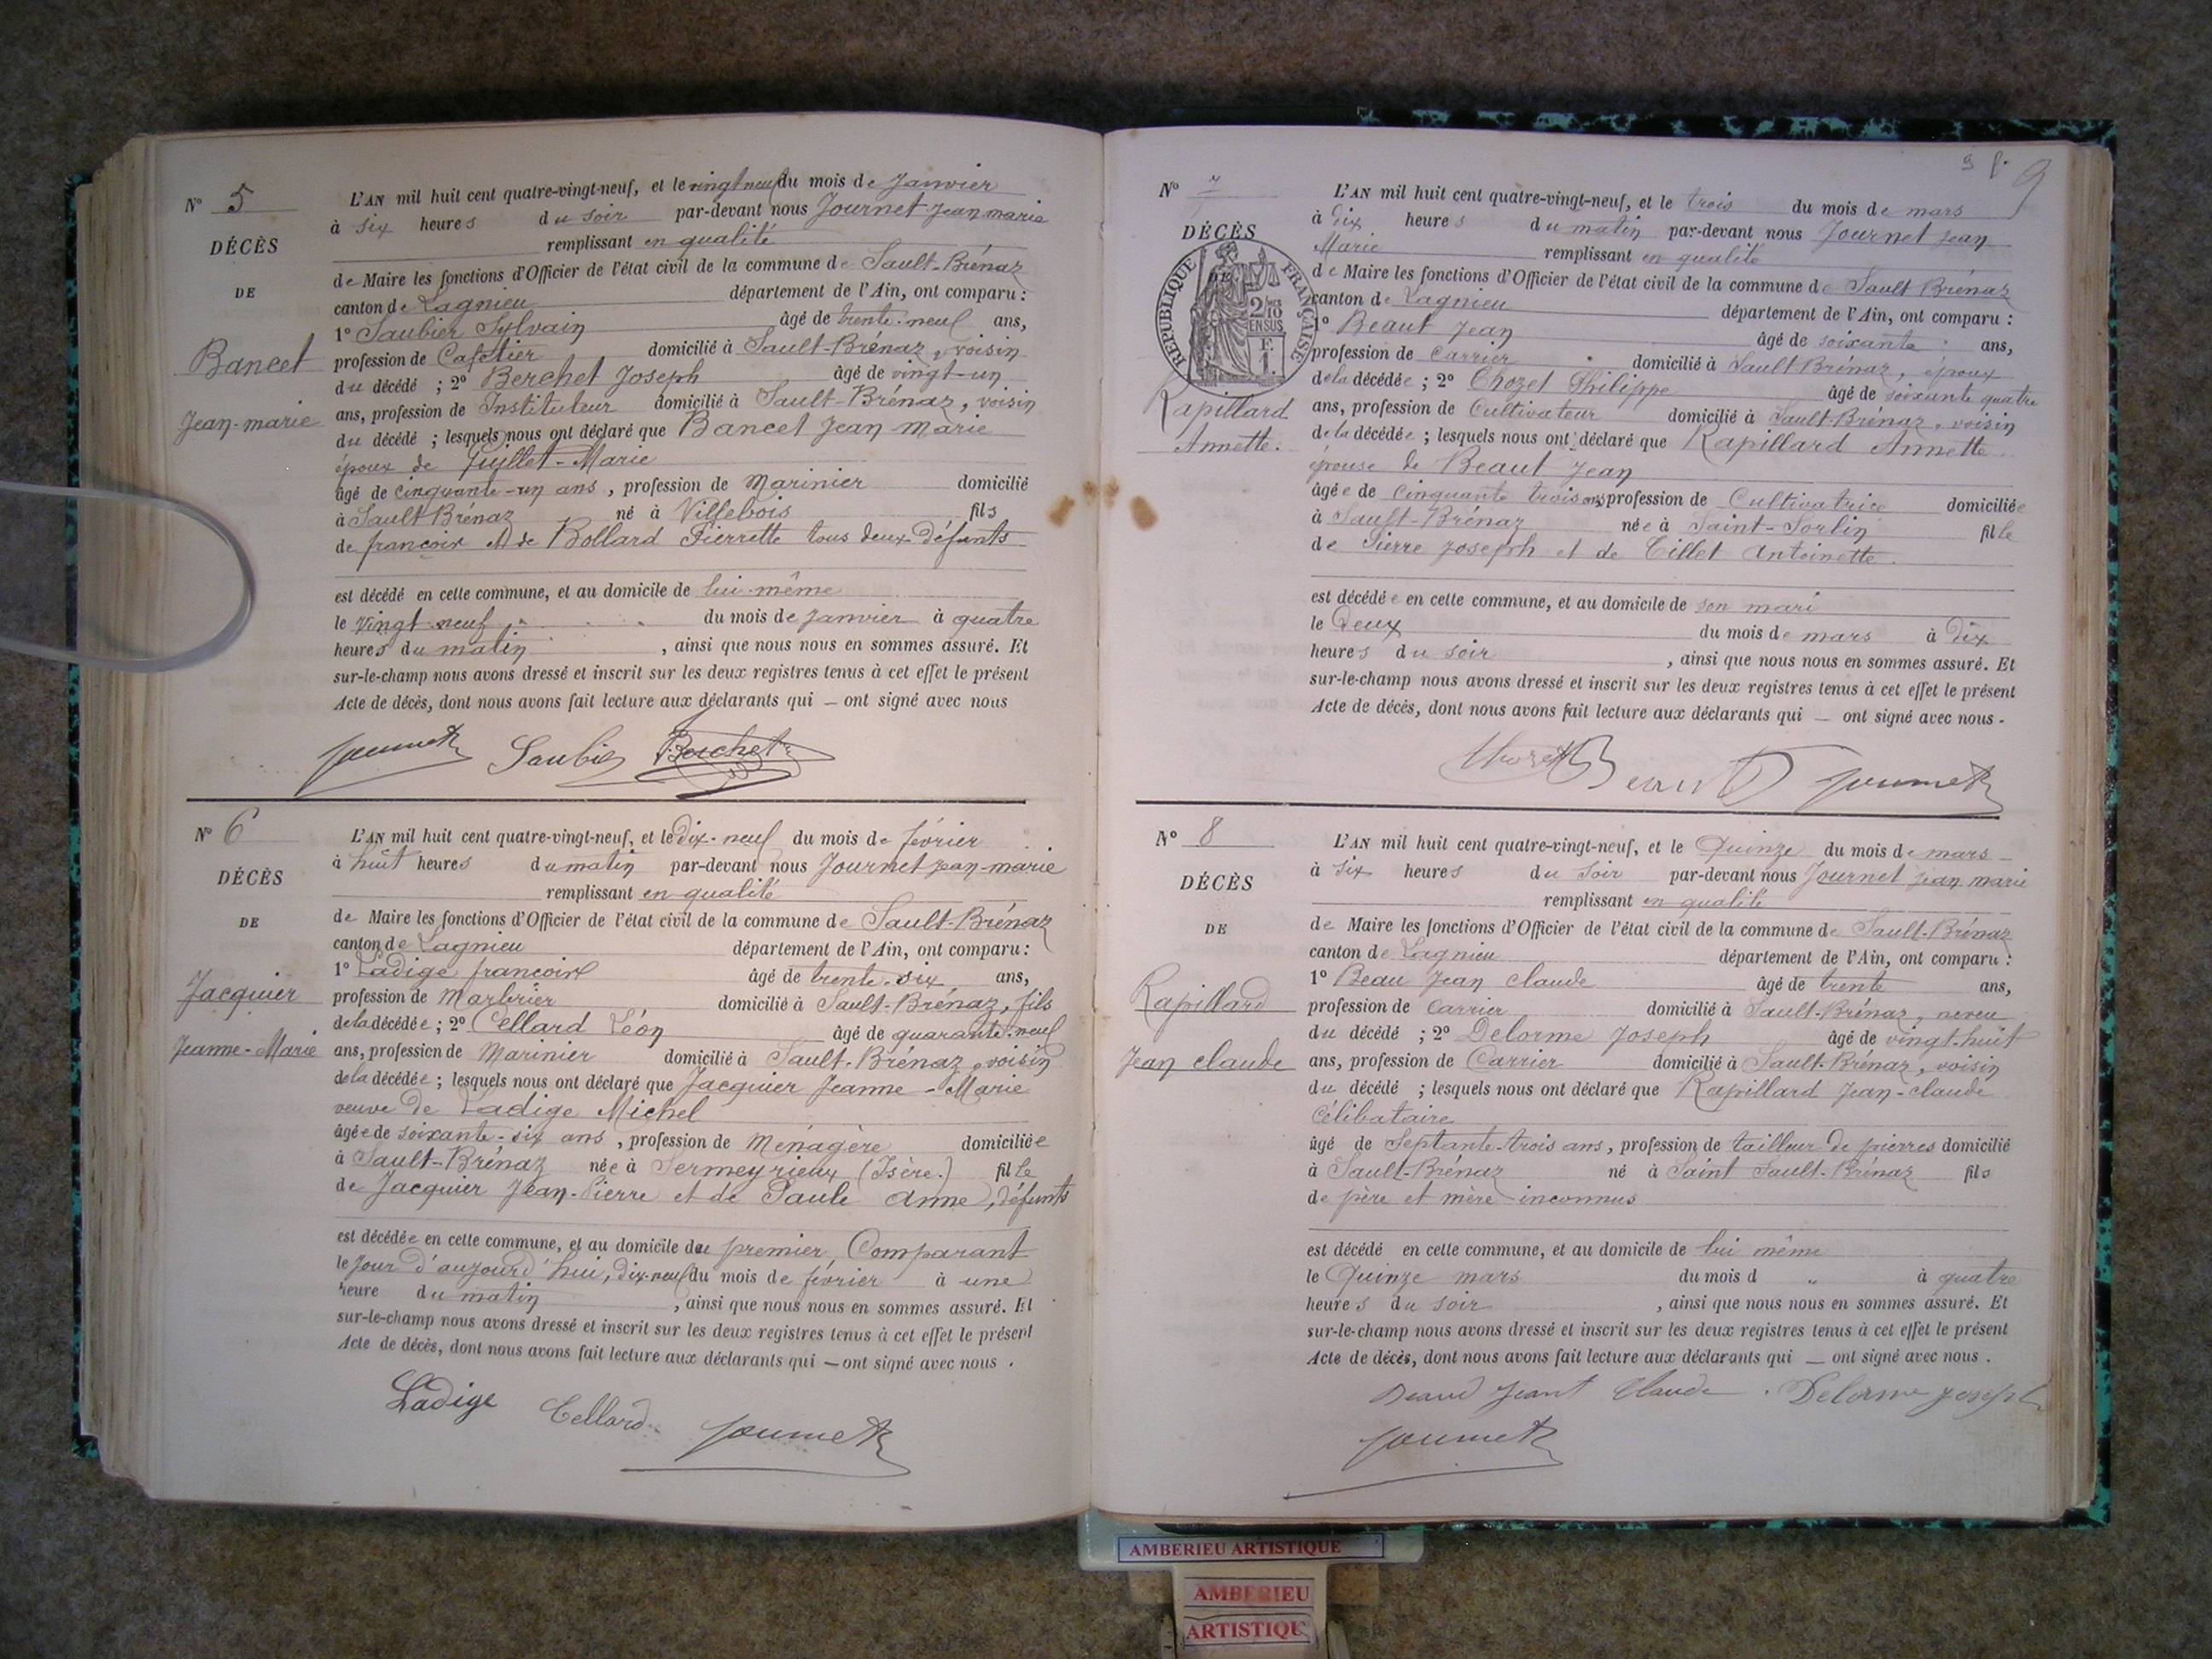 N° 5
DÉCÈS
DE
Bancet
Jean-marie
L'AN mil huit cent quatre-vingt-neuf, et le vingt neuf du mois de Janvier
à six heures du soir par-devant nous Journet Jean marie
remplissant en qualité
de Maire les fonctions d'Officier de l'état civil de la commune de Sault-Brénaz
canton de Lagnieu département de l'Ain, ont comparu :
1° Saubier Sylvain âgé de trente-neuf ans,
profession de Cafetier domicilié à Sault-Brénaz, voisin
du décédé ; 2° Berchet Joseph âgé de vingt-un
ans, profession de Instituteur domicilié à Sault-Brénaz, voisin
du décédé ; lesquels nous ont déclaré que Bancet Jean Marie
époux de Juillet-Marie
âgé de cinquante-un ans, profession de Marinier domicilié
à Sault Brénaz né à Villebois fils
de françoix et de Bollard Pierrette tous deux Défunts
est décédé en cette commune, et au domicile de lui-même
le vingt neuf du mois de janvier à quatre
heures du matin, ainsi que nous nous en sommes assuré. Et
sur-le-champ nous avons dressé et inscrit sur les deux registres tenus à cet effet le présent
Acte de décès, dont nous avons fait lecture aux déclarants qui — ont signé avec nous
Journet Saubier Berchet
N° 6
DÉCÈS
DE
Jacquier
Jeanne-Marie
L'AN mil huit cent quatre-vingt-neuf, et le Dix-neuf du mois de février
à huit heures du matin par-devant nous Journet Jean-marie
remplissant en qualité
de Maire les fonctions d'Officier de l'état civil de la commune de Sault-Brénaz
canton de Lagnieu département de l'Ain, ont comparu :
1° Ladige françoix âgé de trente-six ans,
profession de Marbrier domicilié à Sault-Brénaz, fils
de la décédée ; 2° Cellard Léon âgé de quarante-neuf
ans, profession de Marinier domicilié à Sault-Brénaz, voisin
de la décédée ; lesquels nous ont déclaré que Jacquier Jeanne-Marie
veuve de Ladige Michel
âgée de soixante-six ans, profession de Ménagère domiciliée
à Sault-Brénaz née à Sermeyrieux (Isère.) fille
de Jacquier Jean-Pierre et de Paule Anne, défunts
est décédée en cette commune, et au domicile du premier Comparant
le jour d'aujourd'hui, dix-neuf du mois de février à une
heure du matin, ainsi que nous nous en sommes assuré. Et
sur-le-champ nous avons dressé et inscrit sur les deux registres tenus à cet effet le présent
Acte de décès, dont nous avons fait lecture aux déclarants qui — ont signé avec nous.
Ladige Cellard Journet
9
N° 7
DÉCÈS
RÉPUBLIQUE FRANÇAISE
2/10 EN SUS
F. 1.
Rapillard
Annette.
L'AN mil huit cent quatre-vingt-neuf, et le trois du mois de mars
à dix heures du matin par-devant nous Journet Jean
Marie remplissant en qualité
de Maire les fonctions d'Officier de l'état civil de la commune de Sault Brénaz
canton de Lagnieu département de l'Ain, ont comparu :
1° Beaut Jean âgé de soixante ans,
profession de Carrier domicilié à Sault-Brénaz, époux
de la décédée ; 2° Chozet Philippe âgé de soixante quatre
ans, profession de Cultivateur domicilié à Sault-Brénaz, voisin
de la décédée ; lesquels nous ont déclaré que Rapillard Annette
épouse de Beaut Jean
âgée de Cinquante trois ans, profession de Cultivatrice domiciliée
à Sault-Brénaz née à Saint-Sorlin fille
de Pierre Joseph et de Tillet Antoinette.
est décédée en cette commune, et au domicile de son mari
le Deux du mois de mars à Dix
heures du soir, ainsi que nous nous en sommes assuré. Et
sur-le-champ nous avons dressé et inscrit sur les deux registres tenus à cet effet le présent
Acte de décès, dont nous avons fait lecture aux déclarants qui — ont signé avec nous.
Chozet Beaut Journet
N° 8
DÉCÈS
DE
Rapillard
Jean claude
L'AN mil huit cent quatre-vingt-neuf, et le Quinze du mois de mars
à six heures du soir par-devant nous Journet Jean marie
remplissant en qualité
de Maire les fonctions d'Officier de l'état civil de la commune de Sault-Brénaz
canton de Lagnieu département de l'Ain, ont comparu :
1° Beau Jean claude âgé de trente ans,
profession de Carrier domicilié à Sault-Brénaz, neveu
du décédé ; 2° Delorme Joseph âgé de vingt-huit
ans, profession de Carrier domicilié à Sault-Brénaz, voisin
du décédé ; lesquels nous ont déclaré que Rapillard Jean-claude
Célibataire
âgé de Septante-trois ans, profession de tailleur de pierres domicilié
à Sault-Brénaz né à Saint Sault-Brénaz fils
de père et mère inconnus
est décédé en cette commune, et au domicile de lui même
le Quinze mars du mois d „ à quatre
heures du soir, ainsi que nous nous en sommes assuré. Et
sur-le-champ nous avons dressé et inscrit sur les deux registres tenus à cet effet le présent
Acte de décès, dont nous avons fait lecture aux déclarants qui — ont signé avec nous.
Beaud Jeant Claude. Delorme Joseph
Journet
AMBERIEU ARTISTIQUE
AMBERIEU
ARTISTIQUE